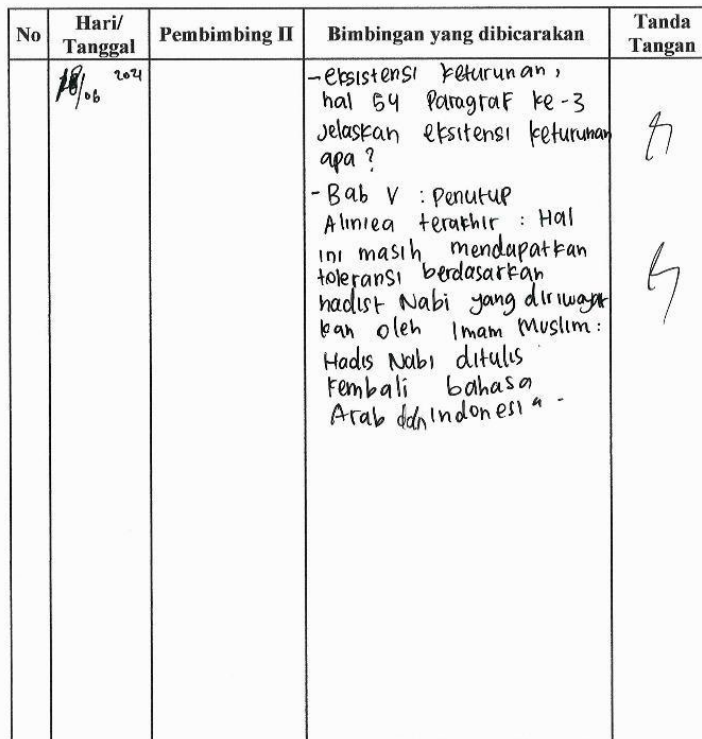 No Hari/ Tanggal Pembimbing II Bimbingan yang dibicarakan Tanda Tangan
/06 2021
- eksistensi keturunan,
hal 54 Paragraf ke-3
Jelaskan eksitensi keturunan
apa?
- Bab V : Penutup
Aliniea terakhir : Hal
ini masih mendapatkan
toleransi berdasarkan
hadist Nabi yang diriwayat
kan oleh Imam Muslim:
Hadis Nabi ditulis
kembali bahasa
Arab dan Indonesia.